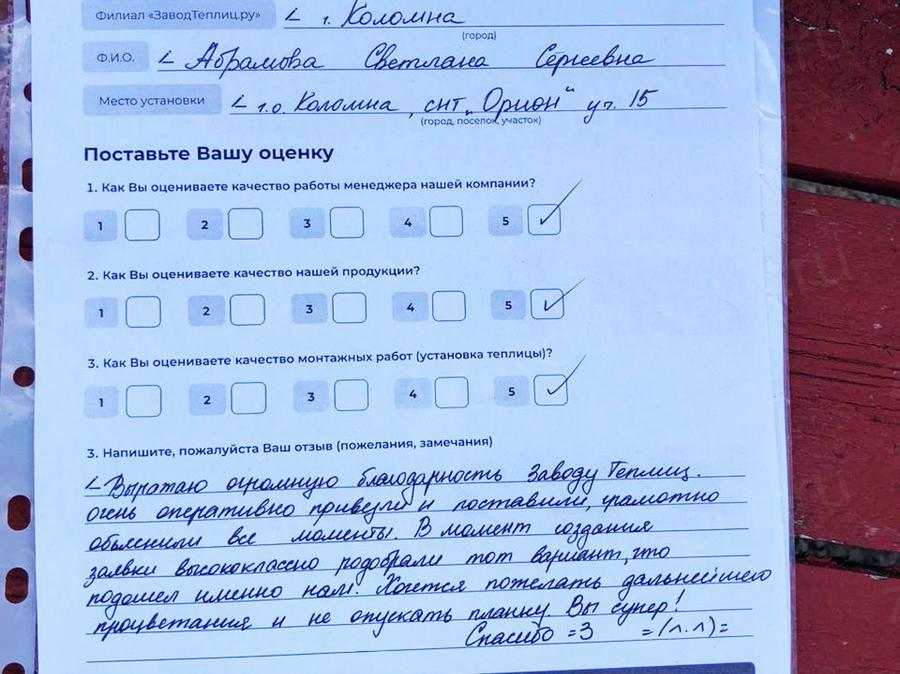 Филиал «ЗаводТеплиц.ру» г. Коломна
(город)
Ф.И.О. Абрамова Светлана Сергеевна
Место установки г.о. Коломна, снт „Орион“ уч. 15
(город, поселок, участок)
Поставьте Вашу оценку
1. Как Вы оцениваете качество работы менеджера нашей компании?
1 2 3 4 5 ✓
2. Как Вы оцениваете качество нашей продукции?
1 2 3 4 5 ✓
3. Как Вы оцениваете качество монтажных работ (установка теплицы)?
1 2 3 4 5 ✓
3. Напишите, пожалуйста Ваш отзыв (пожелания, замечания)
Выражаю огромную благодарность Заводу Теплиц.
очень оперативно привезли и поставили, грамотно
объяснили все моменты. В момент создания
заявки высококлассно подобрали тот вариант, что
подошел именно нам. Хочется пожелать дальнейшего
процветания и не опускать планку. Вы супер!
Спасибо =3 =(^.^)=